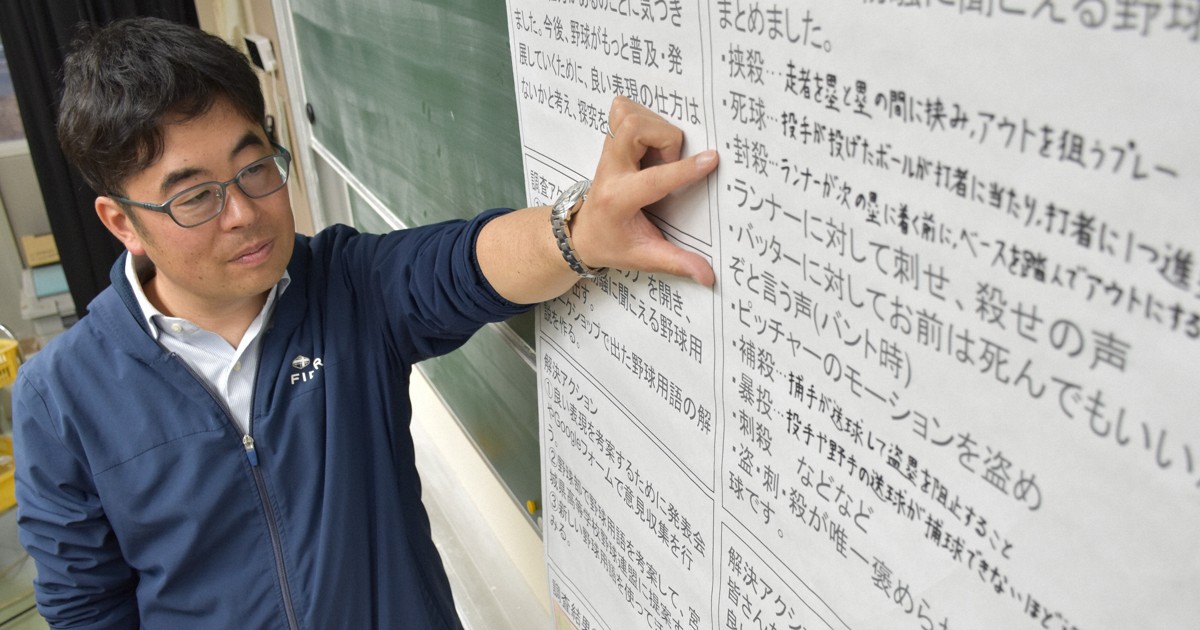 があるのことに気づき
ました。今後、野球がもっと普及・発
展していくために、良い表現の仕方は
ないかと考え、探究を
調査ア
を開き、
騒に聞こえる野球用
出す。
クショップで出た野球用語の解
説を作る。
解決アクション
①良い表現を考案するために発表会
やGoogleフォームで意見収集を行
う。
②野球部で野球用語を考案して、宮
城県高等学校野球連盟に提案す
③新しい野球用語を使って
みる。
調査結果
に聞こえる野球
まとめました。
・挟殺…走者を塁と塁の間に挟み,アウトを狙うプレー
・死球…投手が投げたボールが打者に当たり,打者に1つ進
・封殺…ランナーが次の塁に着く前に,ベースを踏んでアウトにする
・ランナーに対して刺せ、殺せの声
・バッターに対してお前は死んでもいい
ぞと言う声(バント時)
・ピッチャーのモーションを盗め
・補殺…捕手が送球して盗塁を阻止すること
・暴投…投手や野手の送球が捕球できないほど
・刺殺 などなど
・盗・刺・殺が唯一褒められ
球です。
解決アクショ
皆さんか
良い
FI